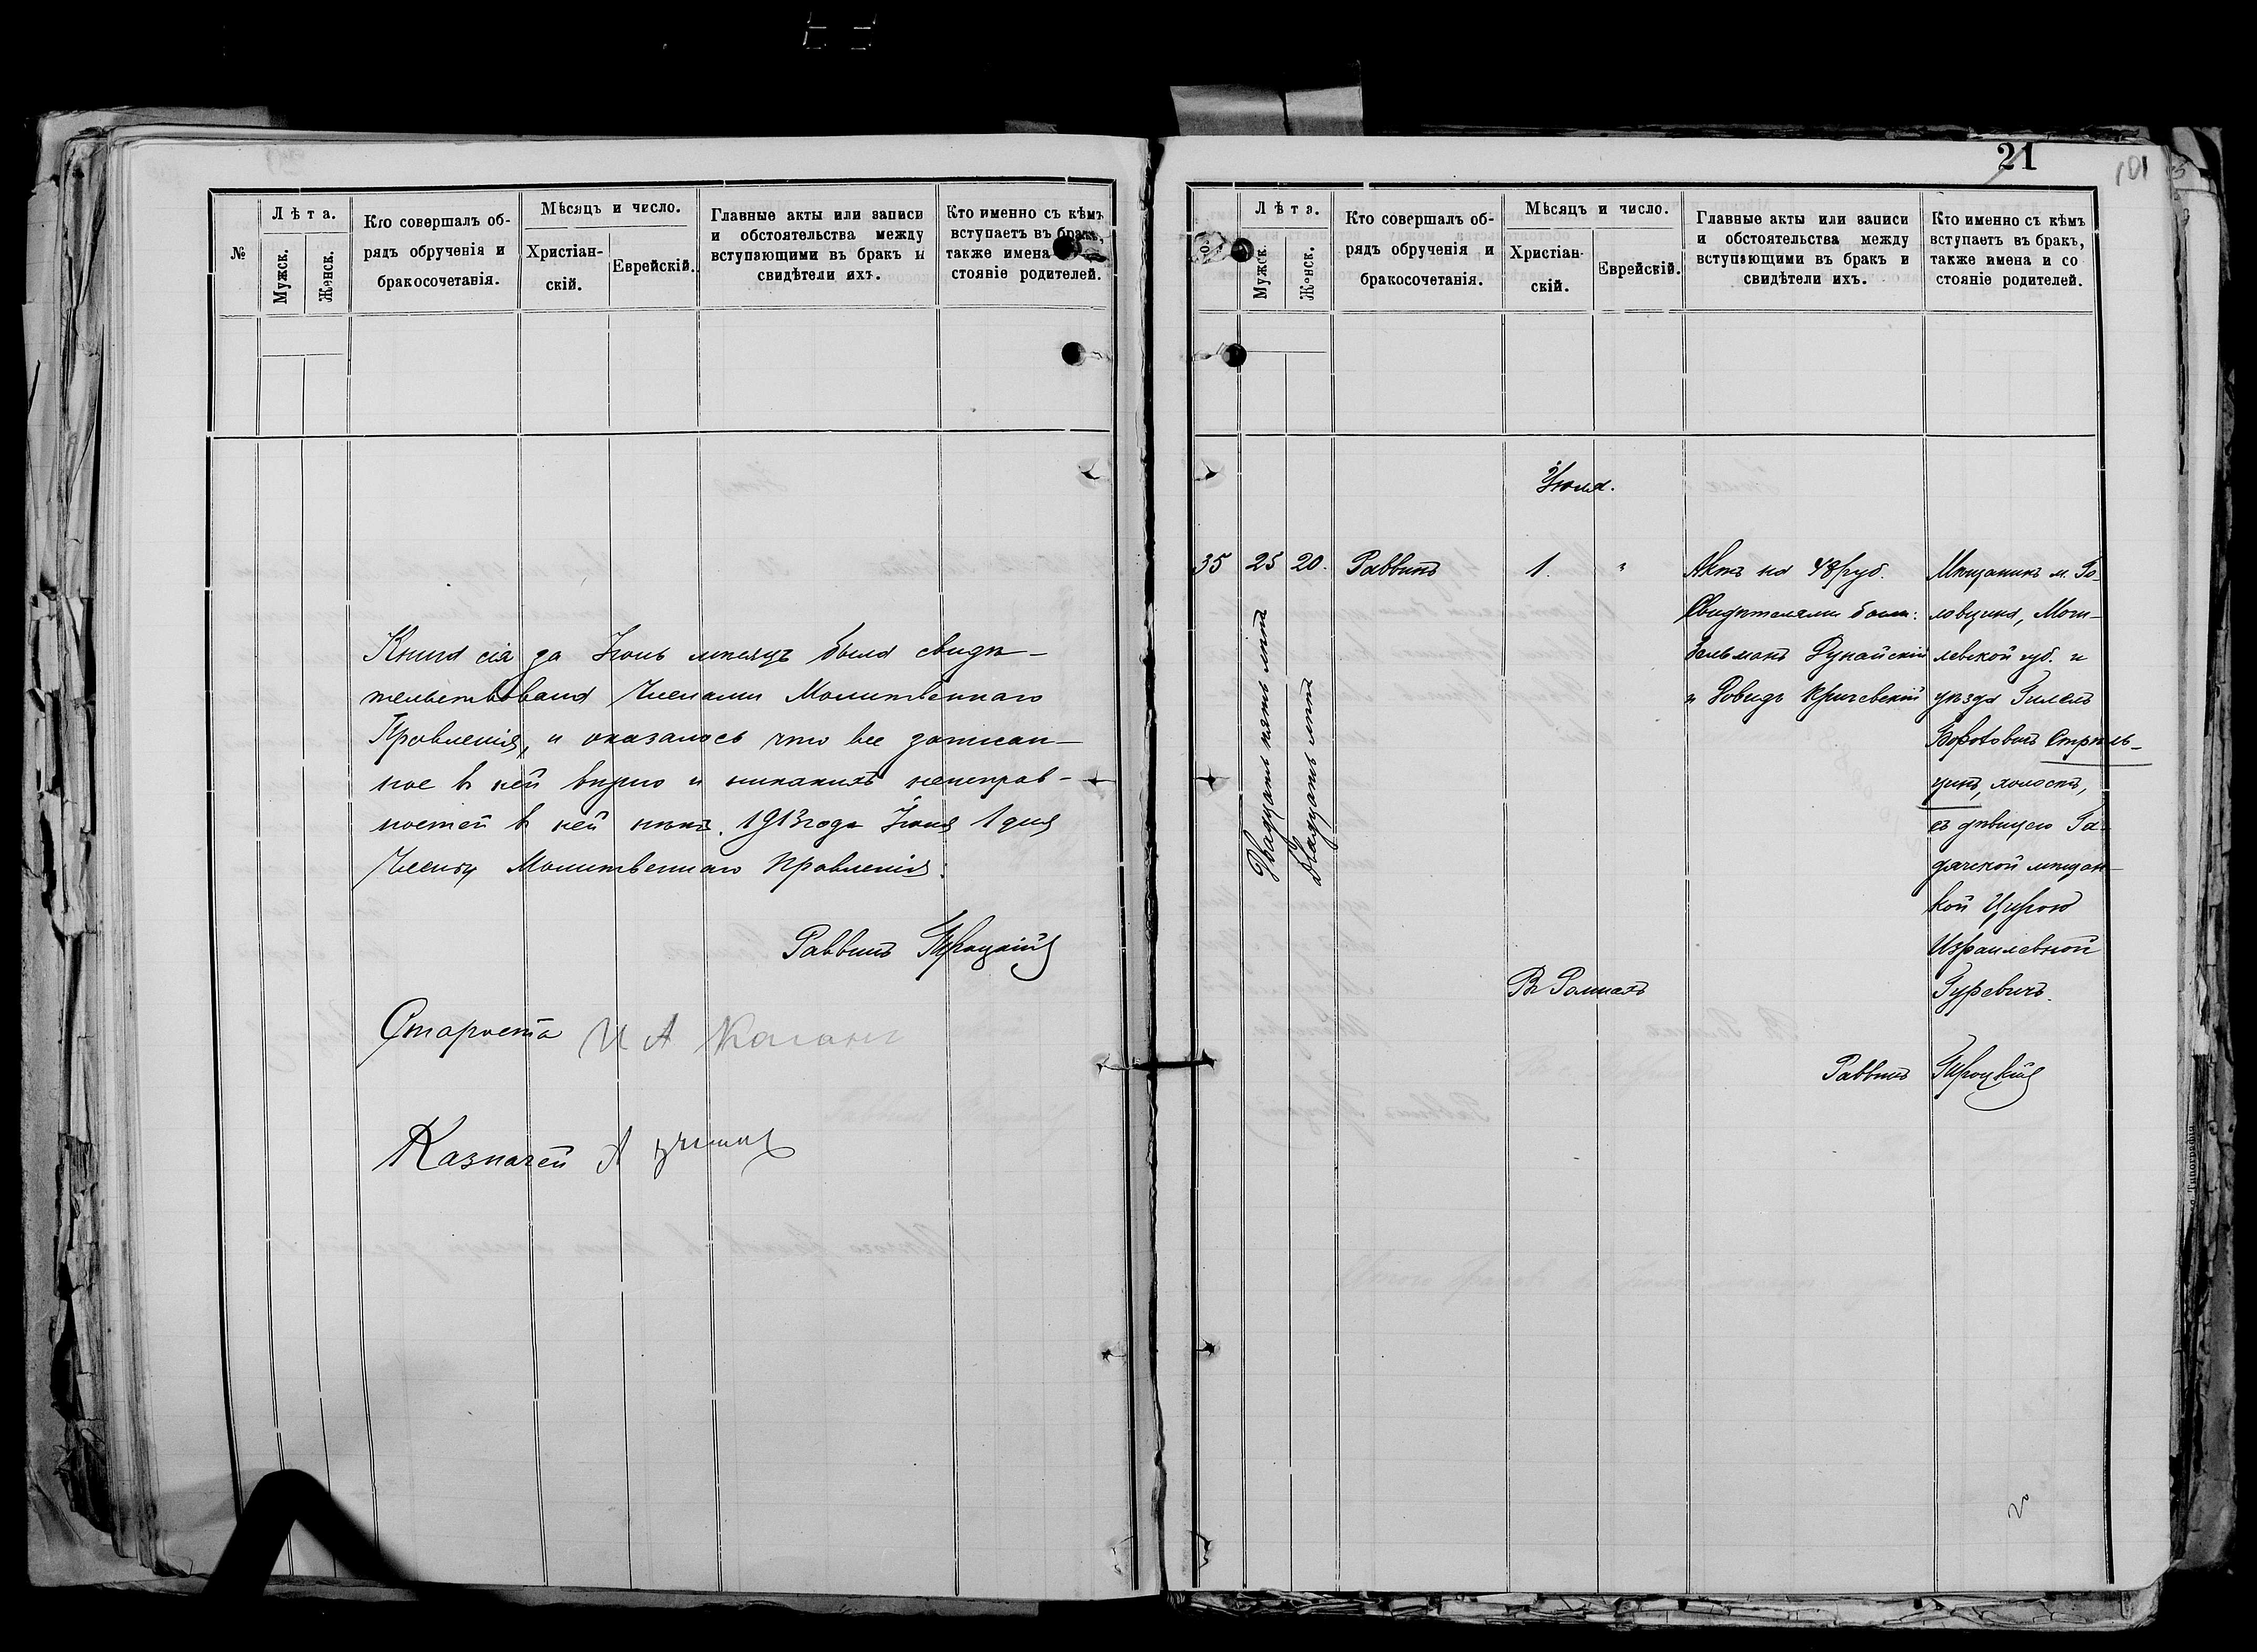 №
Лѣта.
Мужск.
Женск.
Кто совершалъ об-
рядъ обрученія и
бракосочетанія.
Мѣсяцъ и число.
Христіан-
скій.
Еврейскій.
Главные акты или записи
и обстоятельства между
вступающими въ бракъ и
свидѣтели ихъ.
Кто именно съ кѣмъ
вступаетъ въ бракъ,
также имена
стояніе родителей.
Книга сія за Іюнь мѣсяцъ была свидѣ-
тельствована Членами Молитвеннаго
Правленія, и оказалось что все записан-
ное въ ней вѣрно и никакихъ неисправ-
ностей въ ней нѣтъ. 1913 года 1 дня
Члены Молитвеннаго Правленія:
Раввинъ
Староста И А Каганъ
Казначей А
21
101
Лѣта.
Мужск.
Женск.
Кто совершалъ об-
рядъ обрученія и
бракосочетанія.
Мѣсяцъ и число.
Христіан-
скій.
Еврейскій.
Главные акты или записи
и обстоятельства между
вступающими въ бракъ и
свидѣтели ихъ.
Кто именно съ кѣмъ
вступаетъ въ бракъ,
также имена и со
стояніе родителей.
Іюля.
35
25
20.
Двадцать пять лѣтъ
Двадцать лѣтъ
Раввинъ
1.
"
Актъ на 48 руб.
Свидѣтелями были:
Зельманъ Дунайскій
и Довидъ Кричевскій
Мѣщанинъ м. Го-
ловчина, Моги-
левской губ. и
уѣзда Гилель
Стрѣль-
цинъ, холостъ,
съ дѣвицею Га-
дячской мѣщан-
кой Цирою
Израилевной
Гуревичъ.
Въ Ромнахъ
Раввинъ
Типографія